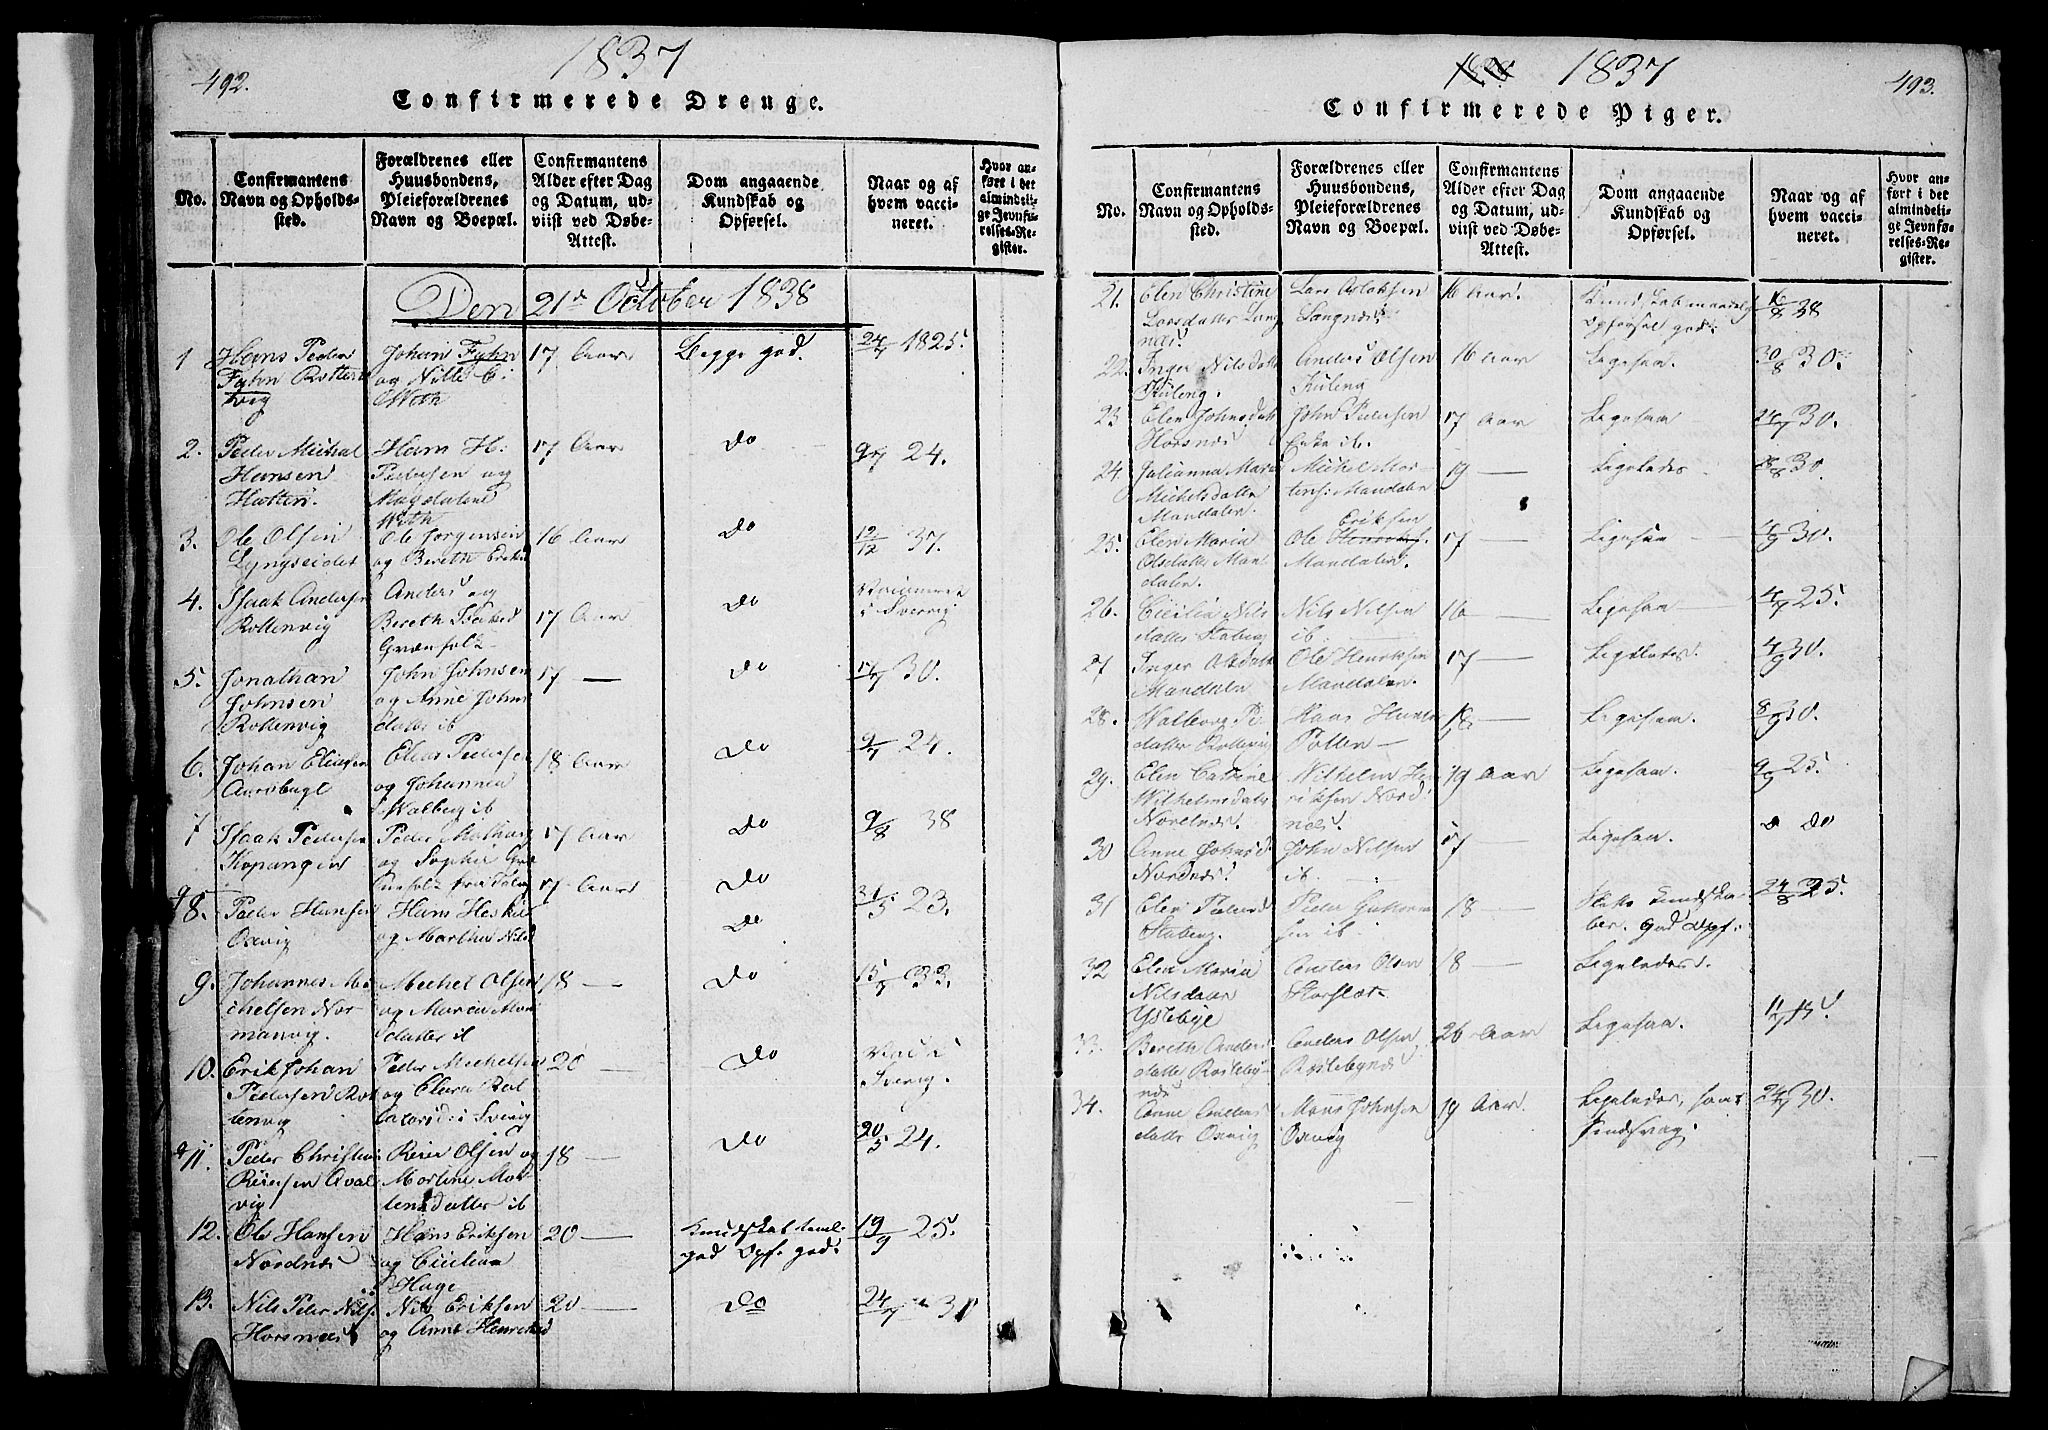 492.
1837
Confirmerede Drenge.
No.
Confirmantens
Navn og Opholds-
sted.
Forældrenes eller
Huusbondens,
Pleieforældrenes
Navn og Boepæl.
Confirmantens
Alder efter Dag
og Datum, ud-
viist ved Døbe-
Attest.
Dom angaaende
Kundskab og
Opførsel.
Naar og af
hvem vacci-
neret.
Hvor an-
ført i det
almindeli-
ge Jevnfø-
relses-Re-
gister.
Den 21de October 1838
1
Hans Peder
Fyhn Rotten
vig
Johan Fyhn
og Nille C:
With
17 Aar
Begge god.
24/7 1825.
2.
Peder Michal
Hansen
Hatten.
Hans H:
Pedersen og
Magdalene
With
17 Aar
Do
9/7 24.
3.
Ole Olsen
Lyngseidet
Ole Jorgensen
og Bereth Eriksd
16 Aar
Do
12/12 37.
4.
Isaak Andersen
Rottenvig
Anders og
Bereth Isaksd
17 Aar
Do
Vaccineret
i Sverrig
5.
Jonathan
Johnsen
Rottenvig
John Johnsen
og Anne Johns
datter ib
17 —
Do
30.
6.
Johan Eliasen
Elias Pedersen
og Johanna
Walberg ib
18 Aar
Do
9/7 24.
7
Isaak Pedersen
Kopangen
Peder Mathias
og Sophie
17 Aar
Do
9/8 38
8.
Peder Hansen
Oxvig
Hans Heskel
og Martha Nilsd
17 Aar
Do
Do
31/5 23.
9.
Johannes Mi
chelsen Nor
manvig.
Michel Olsen
og Maria
datter ib
18 —
Do
15/7 33.
10.
Erik Johan
Pedersen Rot
tenvig
Peder Michelsen
og Clara
i Sverig
20 —
Do
Vacc i
Sverig.
11.
Peder Christian
Reiersen
vig
Reier Olsen og
Martene Mor
tensdatter ib
18 —
Do
20/5 24.
12.
Ole Hansen
Nordnæs
Hans Eriksen
og Cicilia
Hage
20 —
Kundskab teml.
god Opf. god.
19/9 25.
13.
Nils Peder Nils.
Horsnæs
Nils Eriksen
og Anne Henriksd
20 —
Do
24/7 31
1837
493.
Confirmerede Piger.
No.
Confirmantens
Navn og Opholds-
sted.
Forældrenes eller
Huusbondens,
Pleieforældrenes
Navn og Boepæl.
Confirmantens
Alder efter Dag
og Datum, ud-
viist ved Døbe-
Attest.
Dom angaaende
Kundskab og
Opførsel.
Naar og af
hvem vacci-
neret.
Hvor an-
ført i det
almindeli-
ge Jevnfø-
relses-Re-
gister.
21.
Elen Christine
Larsdatter Lang
næs
Lars Aslaksen
Langnæs
16 Aar.
Kundskab maadelig
Opførsel god.
16/8 38
22.
Inger Nilsdatt
Kileng.
Anders Olsen
Kileng
16 Aar
Ligesaa.
30/8 30.
23
Elen Johnsdatt
Horsnæs
John Pedersen
Enke ib.
17 Aar
Ligesaa
24/7 30.
24.
Julianna Maria
Michelsdatter
Mandalen.
Michel Mor-
tens: Mandalen
19 —
Ligeledes
30.
25.
Elen Maria
Olsdatter Man
dalen.
Eriksen
Ole
Mandalen.
17 —
Ligesaa —
4/9 30.
26.
Cicilia Nils
datter Staberg
Nils Nilsen
ib.
16 —
Ligesaa —
4/7 25.
27
Inger Olsdatt
Mandalen
Ole Henriksen
Mandalen.
17 —
Ligeledes.
4/9 30.
28.
Walborg Pe
datter Rottevig
Hans Hansen
Pollen —
18 —
Ligesaa.
8/9 30.
29.
Elen Catrine
Wilhelmsdatter
Nordnæs.
Wilhelm Hen
riksen Nord
næs.
19 Aar
Ligesaa.
9/9 25.
30
Anne Johnsd
Nordnæs
John Nilsen
ib.
17 —
Ligesaa.
Do
31
Elen Pedersd
Staberg.
Peder Guttorm
sen ib
18 —
Slette Kundska-
ber. god Opf.
24/8 25.
32
Elen Maria
Nilsdatter
Ysteby
Anders Olsen
Storslet.
18 —
Ligeledes.
33.
Bereth Anders
datter
næs
Anders Olsen
26 Aar
Ligesaa.
34.
Anne Anders
datter Oxvig
Mons Johnsen
Oxvig
19 Aar.
Ligeledes, samt
sindsvag.
24/7 30.